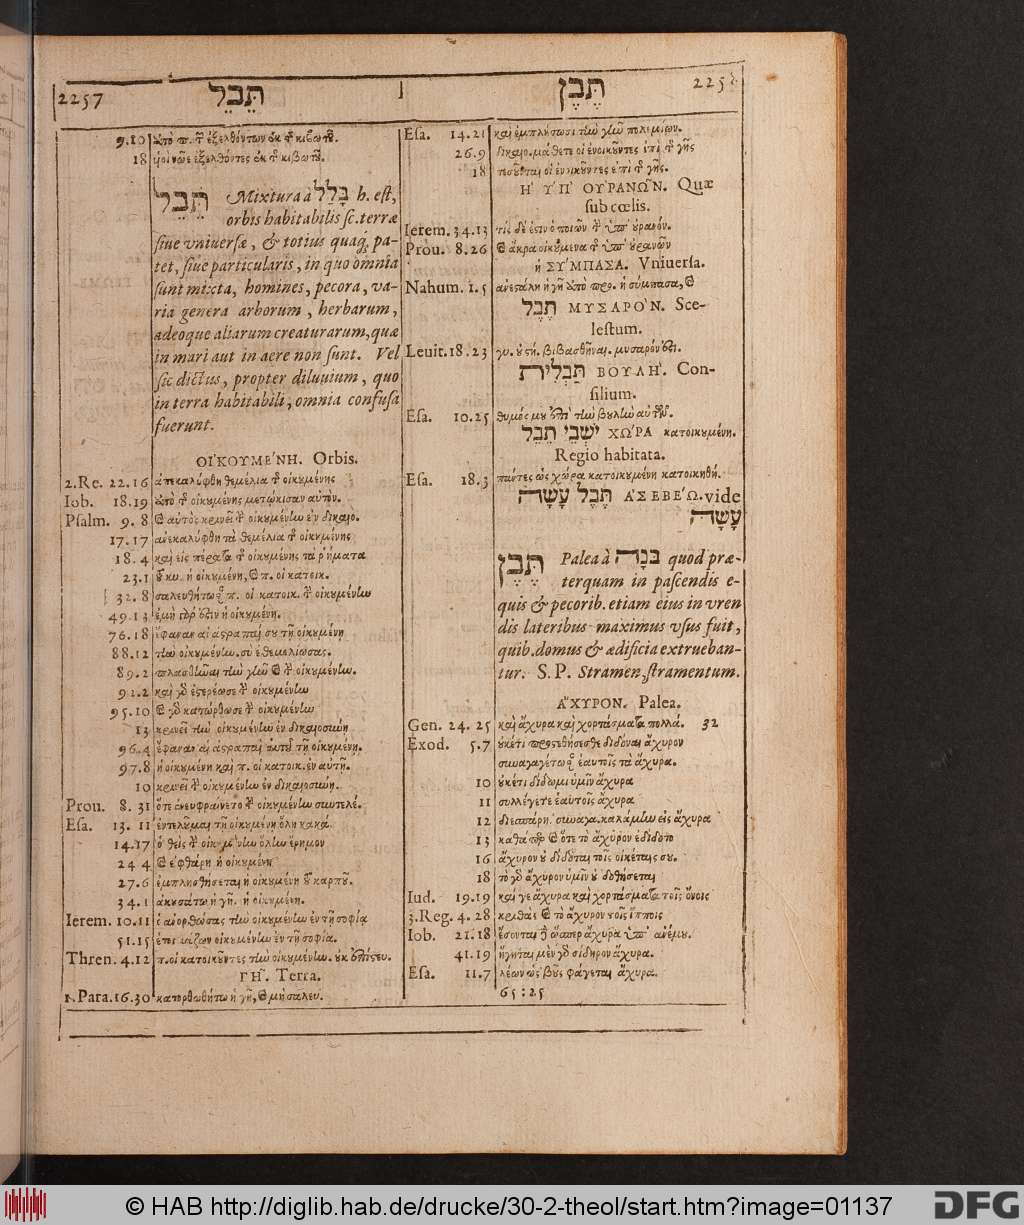 2257 תֵּבֵל
תֶּבֶן 225
9.10
18
תֵּבֵל Mixtura à בָּלַל h. est,
orbis habitabilis sc. terræ
siue vniuersæ, & totius quaq; pa-
tet, siue particularis, in quo omnia
sunt mixta, homines, pecora, va-
ria genera arborum, herbarum,
adeoque aliarum creaturarum, quæ
in mari aut in aere non sunt. Vel
sic dictus, propter diluuium, quo
in terra habitabili, omnia confusa
fuerunt.
ΟΙΚΟΥΜΕΝΗ. Orbis.
2.Re. 22.16 ἀπεκαλύφθη θεμέλια τ οἰκουμένης
Iob. 18.19 οἰκουμένης μετῴκισαν αὐτὸν.
Psalm. 9.8 αὐτὸς κρινεῖ τ οἰκουμένην ἐν
17.17 ἀνεκαλύφθη τὰ θεμέλια τ οἰκουμένης
18.4 καὶ εἰς πέρατα τ οἰκουμένης τὰ ῥήματα
23.1 ἡ οἰκουμένη, οἱ κατοικ.
32.8 οἱ κατοικ. τ οἰκουμένην
49.13 ἐμὴ ἡ οἰκουμένη.
76.18 ἔφαναν αἱ ἀστραπαί σου τῇ οἰκουμένῃ
88.12 τὴν οἰκουμένην. σὺ ἐθεμελίωσας.
89.2 τὴν γῆν τ οἰκουμένην.
92.2 καὶ ἐστερέωσε τ οἰκουμένην
95.10 κατώρθωσε τ οἰκουμένην
13 κρινεῖ τὴν οἰκουμένην ἐν δικαιοσύνῃ
96.4 ἔφαναν αἱ ἀστραπαὶ τῇ οἰκουμένῃ.
97.8 ἡ οἰκουμένη καὶ π. οἱ κατοικ. ἐν αὐτῇ.
10 κρινεῖ τ οἰκουμένην ἐν δικαιοσύνῃ.
Prou. 8.31 ὅτε ἀνευφραίνετο τ οἰκουμένην συντελέ.
Esa. 13.11 ἐντελοῦμαι τῇ οἰκουμένῃ ὅλῃ κακὰ
14.17 ὁ θεὶς τ οἰκουμένην ὅλην ἔρημον
24 4 ἐφθάρη ἡ οἰκουμένη
27.6 ἐμπλησθήσεται ἡ οἰκουμένη καρποῦ.
34.1 ἀκουσάτω ἡ γῆ. ἡ οἰκουμένη.
Ierem. 10.11 ὁ ἀνορθώσας τὴν οἰκουμένην ἐν τῇ σοφίᾳ
51.15 οἰκουμένην ἐν τῇ σοφίᾳ.
Thren. 4.12 π. οἱ κατοικοῦντες τὴν οἰκουμένην. οὐκ
ΓΗ. Terra.
1.Para. 16.30 κατορθωθήτω ἡ γῆ, μὴ σαλευ.
Esa. 14.21 καὶ ἐμπλήσωσι τὴν γῆν πολεμίων.
26.9 μάθετε οἱ ἐνοικοῦντες ἐπὶ τ γῆς
18 πεσοῦνται οἱ ἐνοικοῦντες ἐπὶ τ γῆς.
Ἡ ὙΠ' ΟΥΡΑΝΩΝ. Quæ
sub cœlis.
Ierem. 34.13 τίς δέ ἐστιν ὁ ποιῶν τ ὑπ' οὐρανόν.
Prou. 8.26 ἄκρα οἰκούμενα τ ὑπ' οὐρανῶν
ἡ ΣΥΜΠΑΣΑ. Vniuersa.
Nahum. 1.5 ἀνεστάλη ἡ γῆ ἡ σύμπασα,
תֶּבֶל ΜΥΣΑΡΟΝ. Sce-
lestum.
Leuit. 18.23 βιβασθῆναι. μυσαρόν
תַּבְלִית ΒΟΥΛΗ. Con-
silium.
Esa. 10.25 θυμός μου τὴν βουλὴν αὐτῶν.
יֹשְׁבֵי תֵבֵל ΧΩΡΑ κατοικουμένη.
Regio habitata.
Esa. 18.3 πάντες ὡς χώρα κατοικουμένη κατοικηθῇ.
תֶּבֶל עָשָׂה ἈΣΕΒΕΏ. vide
עָשָׂה
תֶּבֶן Palea à בנה quod præ-
terquam in pascendis e-
quis & pecorib. etiam eius in vren
dis lateribus maximus vsus fuit,
quib. domus & ædificia extrueban-
tur. S. P. Stramen, stramentum.
ἌΧΥΡΟΝ. Palea.
Gen. 24.25 καὶ ἄχυρα καὶ χορτάσματα πολλά. 32
Exod. 5.7 οὐκέτι προστεθήσεσθε διδόναι ἄχυρον
συναγαγέτωσ ἑαυτοῖς τὰ ἄχυρα.
10 οὐκέτι δίδωμι ὑμῖν ἄχυρα
11 συλλέγετε ἑαυτοῖς ἄχυρα
12 διεσπάρη. συναγα. καλάμην εἰς ἄχυρα
13 καθάπερ ὅτε τὸ ἄχυρον ἐδίδοτο
16 ἄχυρον οὐ δίδοται τοῖς οἰκέταις σου.
18 τὸ ἄχυρον ὑμῖν οὐ δοθήσεται
Iud. 19.19 καί γε ἄχυρα καὶ χορτάσματα τοῖς ὄνοις
3.Reg. 4.28 κριθὰς τὸ ἄχυρον τοῖς ἵπποις
Iob. 21.18 ἔσονται ὥσπερ ἄχυρα ὑπ' ἀνέμου.
41.19 ἥγηται μὲν σίδηρον ἄχυρα.
Esa. 11.7 λέων ὡς βοῦς φάγεται ἄχυρα.
65:25
© HAB http://diglib.hab.de/drucke/30-2-theol/start.htm?image=01137
DFG